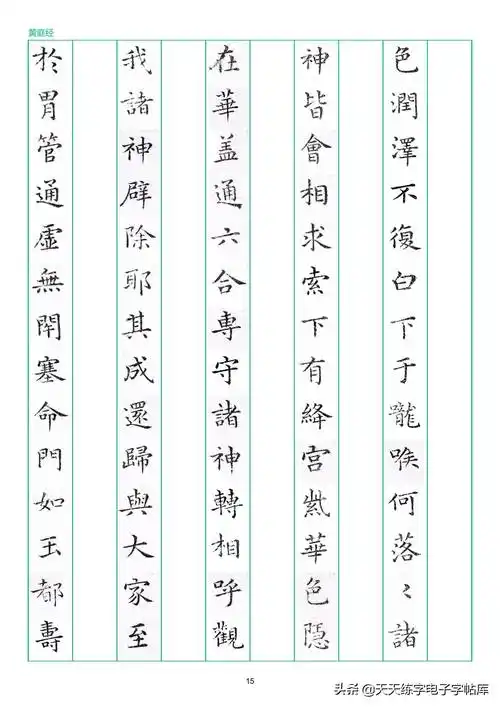 黄庭经
色潤澤不復白下于嚨喉何落〻諸
神皆會相求索下有絳宮紫華色隱
在華蓋通六合專守諸神轉相呼觀
我諸神辟除耶其成還歸與大家至
於胃管通虛無閇塞命門如玉都壽
15
头条@天天练字电子字帖库